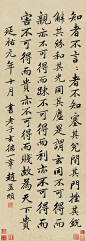 知者不言言者不知塞其兌閉其門挫其銳
解其紛和其光同其塵是謂玄同不可得而
親亦不可得而踈不可得而利亦不可得而
害不可得而貴亦不可得而賤故為天下貴
延祐元年十月書老子玄德章趙孟頫